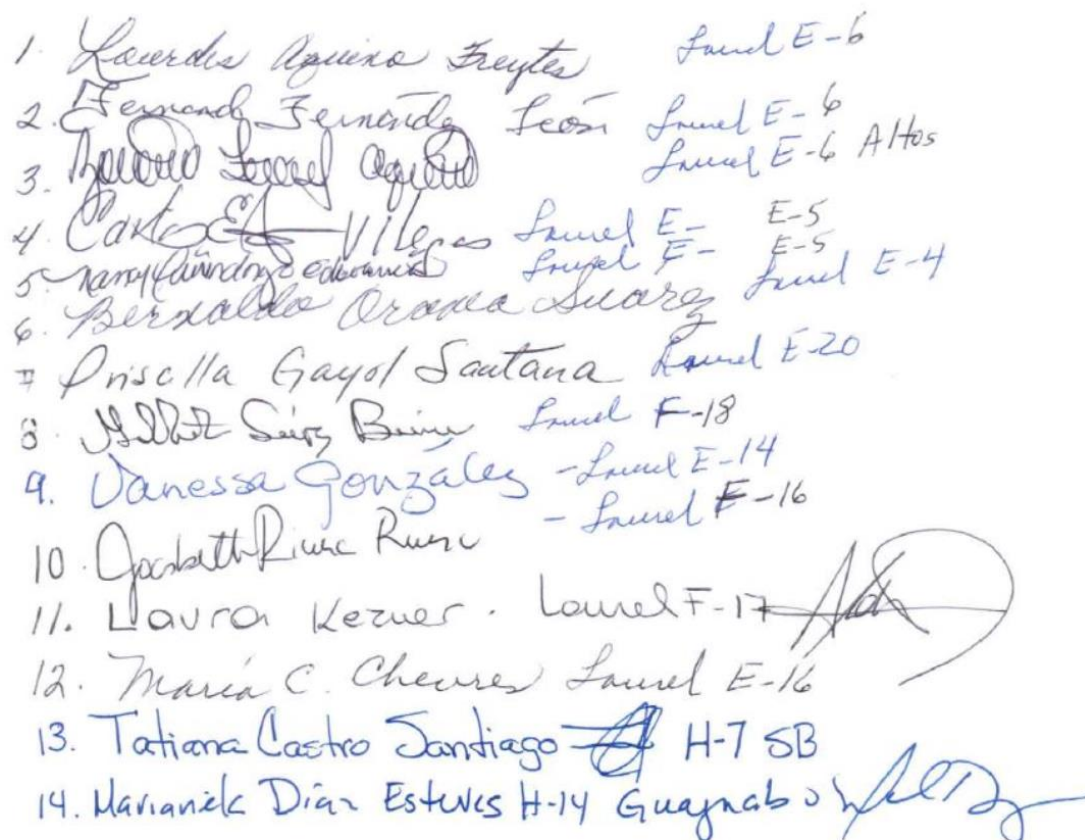 1 Lourdes Aquino Freytes Laurel E-6
2. Fernando Fernández León Laurel E-6
3. Aquino Laurel E-6 Altos
4. Carlos Villegas Laurel E- E-5
5. Nancy Laurel E- E-5
6. Bernaldo Oronea Suarez Laurel E-4
7 Priscilla Gayol Santana Laurel E-20
8. Laurel F-18
9. Vanessa González - Laurel E-14
- Laurel F-16
10. Rivera
11. Laura Kezner. Laurel F-17
12. María C. Cheures Laurel E-16
13. Tatiana Castro Santiago H-7 SB
14. Marianick Díaz Esteves H-14 Guaynabo